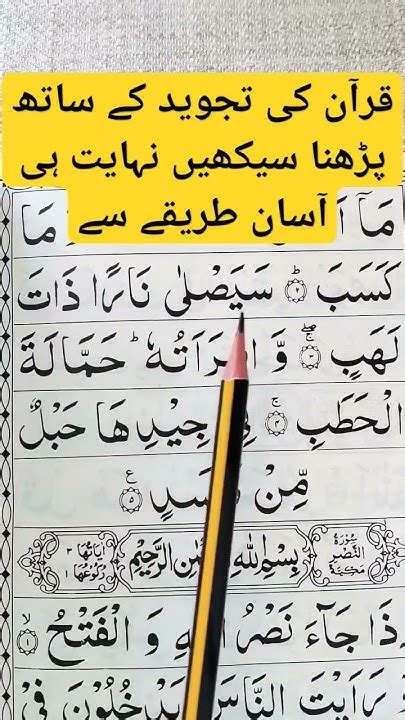 قرآن کی تجوید کے ساتھ
پڑھنا سیکھیں نہایت ہی
آسان طریقے سے
مَا
كَسَبَ ؕ﴿۲﴾ سَيَصْلٰى نَارًا ذَاتَ
لَهَبٍ ۚۖ﴿۳﴾ وَّ امْرَاَتُهٗ ؕ حَمَّالَةَ
الْحَطَبِ ۚ﴿۴﴾ فِيْ جِيْدِهَا حَبْلٌ
مِّنْ مَّسَدٍ ﴿۵﴾ ع
سُوْرَةُ النَّصْرِ
بِسْمِ اللّٰهِ الرَّحْمٰنِ الرَّحِيْمِ
اٰيَاتُهَا ۳
رُكُوْعُهَا ۱
اِذَا جَآءَ نَصْرُ اللّٰهِ وَ الْفَتْحُ ۙ﴿۱﴾
وَ رَاَيْتَ النَّاسَ يَدْخُلُوْنَ فِيْ